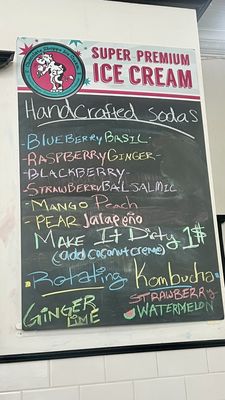 SUPER PREMIUM
ICE CREAM
HandCrafted Sodas
-BLUEBERRY BASIL-
-RASPBERRY GINGER-
-BLACKBERRY-
-STRAWBERRY BALSALMIC
-MANGO Peach
-PEAR Jalapeño
MAKE It Dirty 1$
(add coconut creme)
Rotating Kombucha
GINGER
LIME
STRAWBERRY
WATERMELON